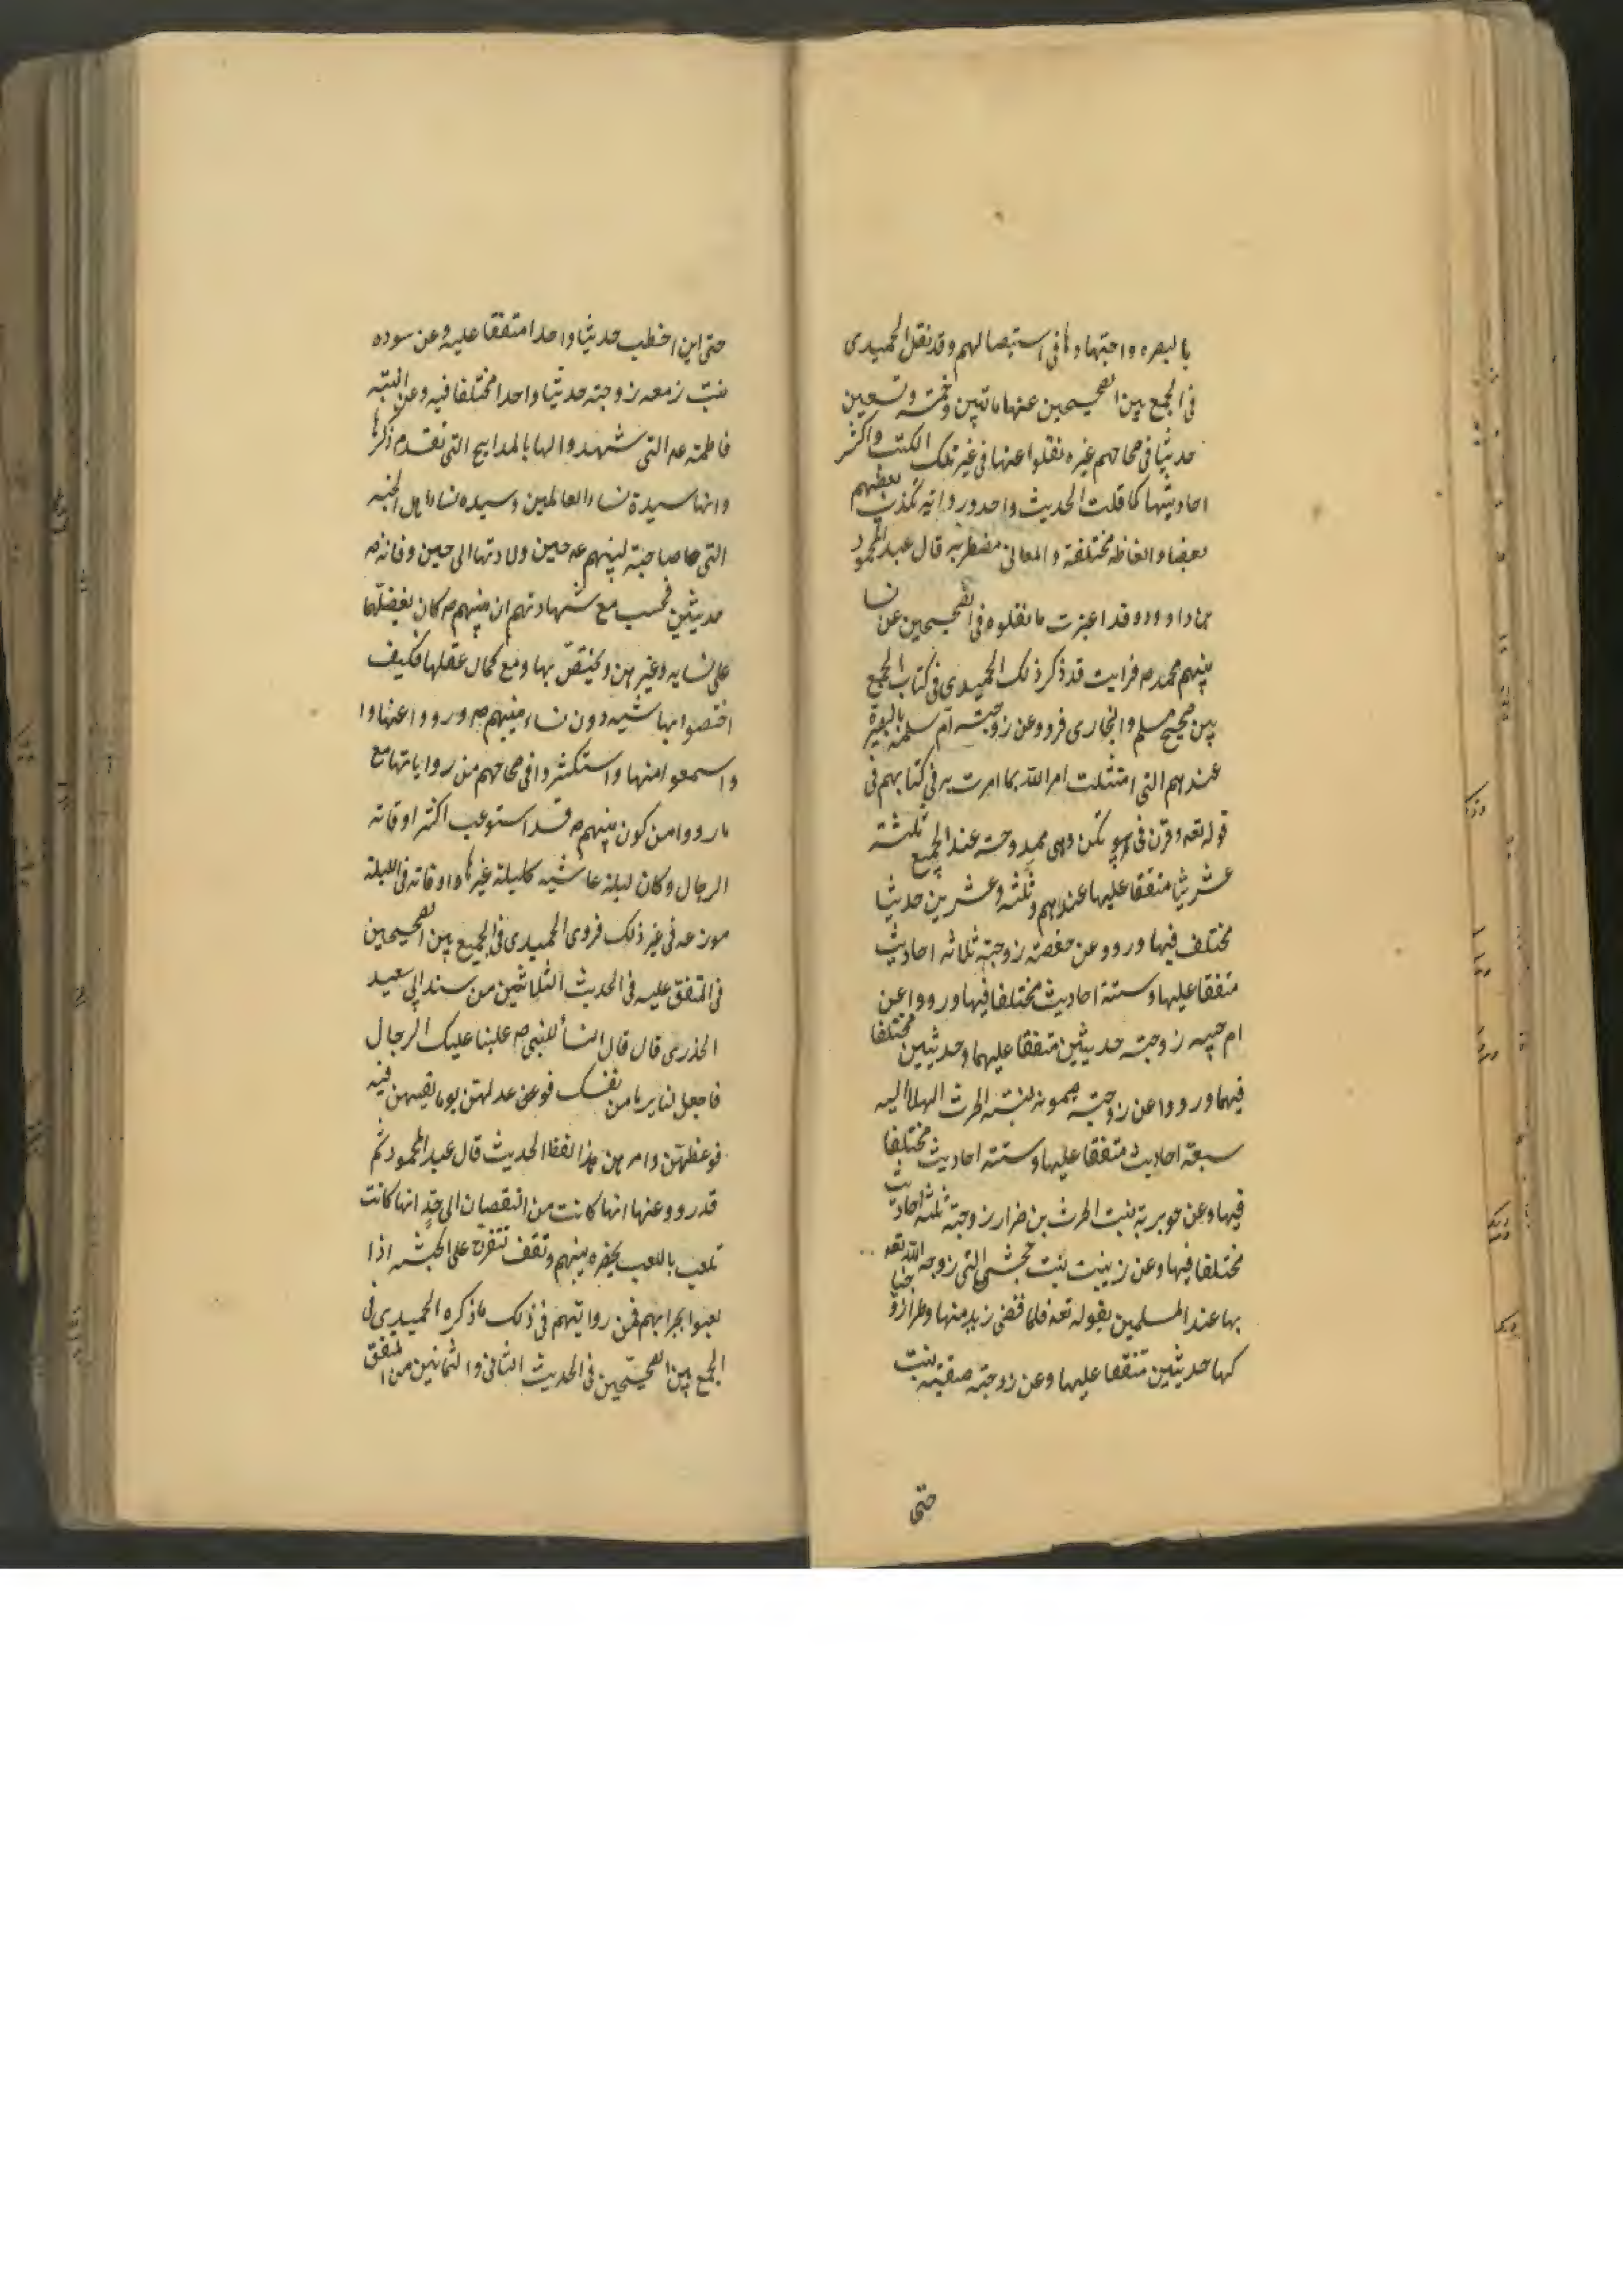 بالبصره واجتهادها فى استيصالهم وقد نقل الحميدى
فى الجمع بين الصحيحين عنها ماتيين وخمسته وتسعين
حديثا فى صحاحهم غيره نقلوا عنها فى غير تلك الكتب واكثر
احاديثها كما قلت الحديث واحد ورواته يكذب بعضهم
بعضا والفاظه مختلفة والمعانى مضطربه قال عبد المحمود
بن داود وقد اعبرت ما نقلوه فى الصحيحين عن نسا
نبيهم محمد ص فرايت قد ذكر ذلك الحميدى فى كتاب الجمع
بين صحيح مسلم والبخارى فرووا عن زوجته ام سلمه
عندهم التى امتثلت امر الله بما امرت به فى كتابهم فى
قوله تعه وقرن فى بيوتكن وهى ممدوحة عند الجميع ثلثة
عشر يثا متفقا عليها عندهم وثلثه وعشرين حديثا
مختلف فيها ورووا عن حفصة زوجته ثلاثه احاديث
متفقا عليها وستة احاديث مختلفا فيها ورووا عن
ام حبيبه زوجته حديثين متفقا عليهما وحديثين مختلفا
فيهما ورووا عن زوجته ميمونه بنت الحرث الهلاليه
سبعة احاديث متفقا عليها وستة احاديث مختلفا
فيها وعن جويرية بنت الحرث بن ضرار زوجته ثلثه احاديث
مختلفا فيها وعن زينب بنت جحش التى زوجه الله تعه
بها عند المسلمين بقوله تعه فلما قضى زيد منها وطرا زوجنا
كها حديثين متفقا عليها وعن زوجته صفيه بنت
حتى
حتى ابن اخطب حديثا واحدا متفقا عليه وعن سوده
بنت زمعه زوجته حديثا واحدا مختلفا فيه وعن ابنته
فاطمة عه التى شهدوا لها بالمدايح التى تقدم ذكرها
وانها سيدة نساء العالمين وسيده نساء اهل الجنه
التى صاحبة نبيهم عه حين ولادتها الى حين وفاته ص
حديثين فحسب مع شهادتهم ان نبيهم ص كان يفضلها
على نسايه وغيرهن ويختص بها ومع كمال عقلها فكيف
اختصوا بها شيه دون نساء نبيهم ص ورووا عنها وا
واسمعوا منها واستكثروا فى صحاحهم من رواياتها مع
مارووا من كون نبيهم ص قد استوعب اكثر اوقاته
الرجال وكان ليلة عايشه كليلة غيرها واوقاته فى الليلة
موزعه فى غير ذلك فروى الحميدى فى الجمع بين الصحيحين
فى المتفق عليه فى الحديث الثلاثين من مسند ابى سعيد
الخدرى قال قال النسا للنبى ص غلبنا عليك الرجال
فاجعل لنا يوما من نفسك فوعدلهن يوما يقيهن فيه
فوعظهن وامرهن هذا لفظ الحديث قال عبد المحمود ثم
قد رووا عنها انها كانت من النقصان الى حدٍ انها كانت
تلعب باللعب بحضره نبيهم وتقف تتفرج على الحبشه اذا
لعبوا بحرابهم فمن روايتهم فى ذلك ما ذكره الحميدى فى
الجمع بين الصحيحين فى الحديث الثانى والثمانين من المتفق